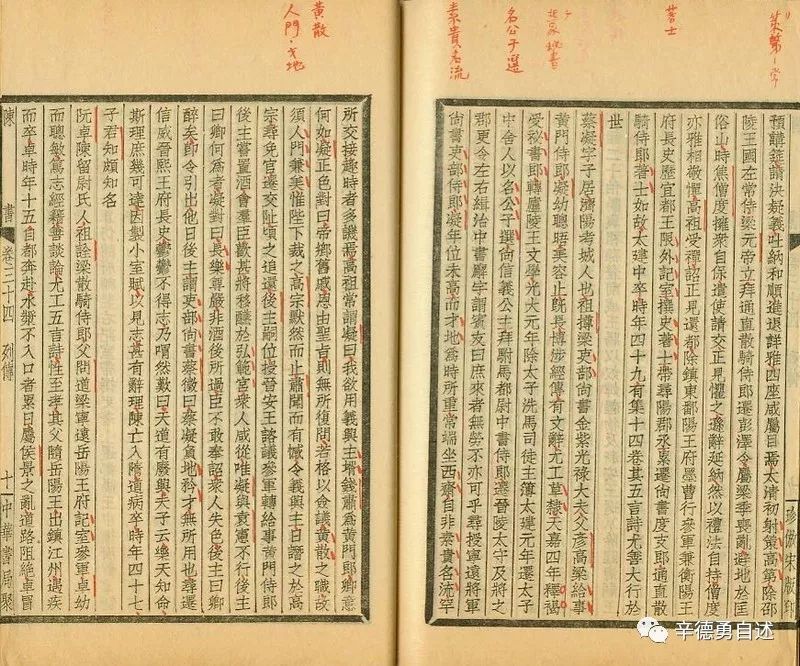 策第一.学
著士
名公子選
素貴名流
預講筵請決疑義吐納和順進退詳雅四座咸屬目焉太清初射策高第除邵
陵王國左常侍梁元帝立拜通直散騎侍郎遷彭澤令屬梁季喪亂避地於匡
俗山時焦僧度擁衆自保遣使請交正見懼之遜辭延納然以禮法自持僧度
亦雅相敬憚高祖受禪詔正見還都除鎮東鄱陽王府墨曹行參軍兼衡陽王
府長史歷宜都王限外記室撰史著士帶尋陽郡丞累遷尚書度支郎通直散
騎侍郎著士如故太建中卒時年四十九有集十四卷其五言詩尤善大行於
世
蔡凝字子居濟陽考城人也祖撙梁吏部尚書金紫光祿大夫父彥高梁給事
黃門侍郎凝幼聰晤美容止既長博涉經傳有文辭尤工草隸天嘉四年釋褐
受祕書郎轉廬陵王文學光大元年除太子洗馬司徒主簿太建元年遷太子
中舍人以名公子選尚信義公主拜駙馬都尉中書侍郎遷晉陵太守及將之
郡更令左右緝治中書廨宇謂賓友曰庶來者無勞不亦可乎尋授寧遠將軍
尚書吏部侍郎凝年位未高而才地爲時所重常端坐西齋自非素貴名流罕
珍倣宋版印
黃散
人門.才地
所交接趣時者多譏焉高祖常謂凝曰我欲用義興主壻錢肅爲黃門郎卿意
何如凝正色對曰帝鄉舊戚恩由聖旨則無所復問若格以僉議黃散之職故
須人門兼美惟陛下裁之高宗默然而止肅聞而有憾令義興主日譖之於高
宗尋免官遷交趾頃之追還後主嗣位授晉安王諮議參軍轉給事黃門侍郎
後主嘗置酒會羣臣歡甚將移醼於弘範宮衆人咸從唯凝與袁憲不行後主
曰卿何爲者凝對曰長樂尊嚴非酒後所過臣不敢奉詔衆人失色後主曰卿
醉矣卽令引出他日後主謂吏部尚書蔡徵曰蔡凝負地矜才無所用也尋遷
信威晉熙王府長史鬱鬱不得志乃喟然歎曰天道有廢興夫子云樂天知命
斯理庶幾可達因製小室賦以見志甚有辭理陳亡入隋道病卒時年四十七
子君知頗知名
阮卓陳留尉氏人祖詮梁散騎侍郎父問道梁寧遠岳陽王府記室參軍卓幼
而聰敏篤志經籍善談論尤工五言詩性至孝其父隨岳陽王出鎮江州遇疾
而卒卓時年十五自都奔赴水漿不入口者累日屬侯景之亂道路阻絕卓冒
陳書 卷三十四 列傳 十一中華書局聚
辛德勇自述